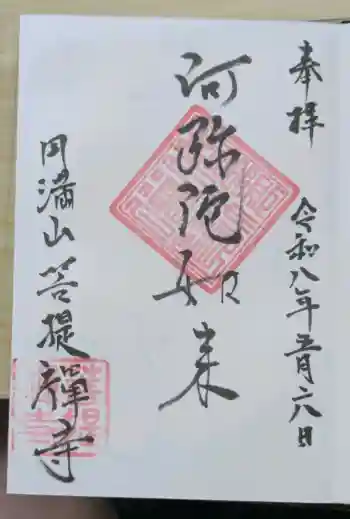 奉拝
令和八年五月六八日
阿弥陀如来
円満山菩提禅寺